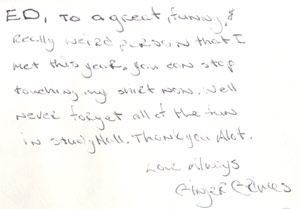 ED, To a great, funny, &
Really weird person that I
met this year, you can stop
touching my shirt now. We'll
never forget all of the fun
in study Hall. Thank you Alot.
Love Always
Ginger